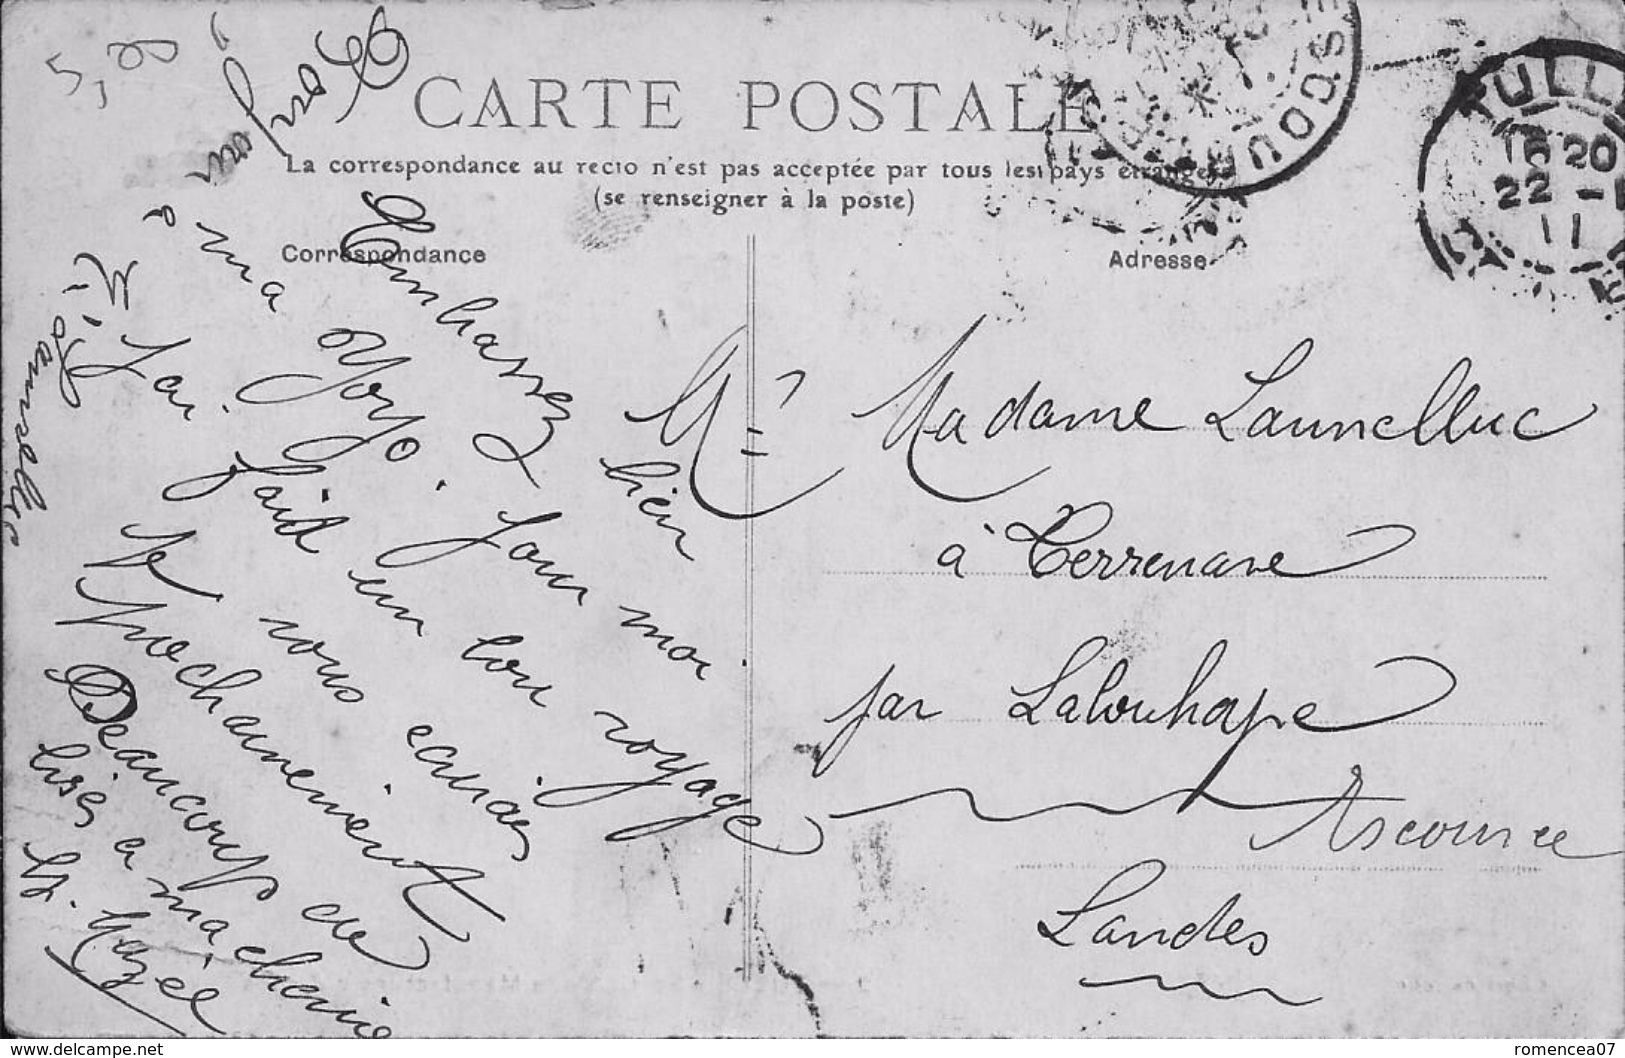 CARTE POSTALE
La correspondance au recto n'est pas acceptée par tous les pays étrangers
(se renseigner à la poste)
Correspondance
Adresse
TULLE
16 20
22 - 1
11
Bonjour
à ma Yoyo.
Embrassez bien
pour moi
J'ai fait un bon voyage
Je vous écrirai
prochainement
Beaucoup de
bises a ma cherie
Madame Launelluc
à
par Labouheyre
Landes
www.delcampe.net
romencea07